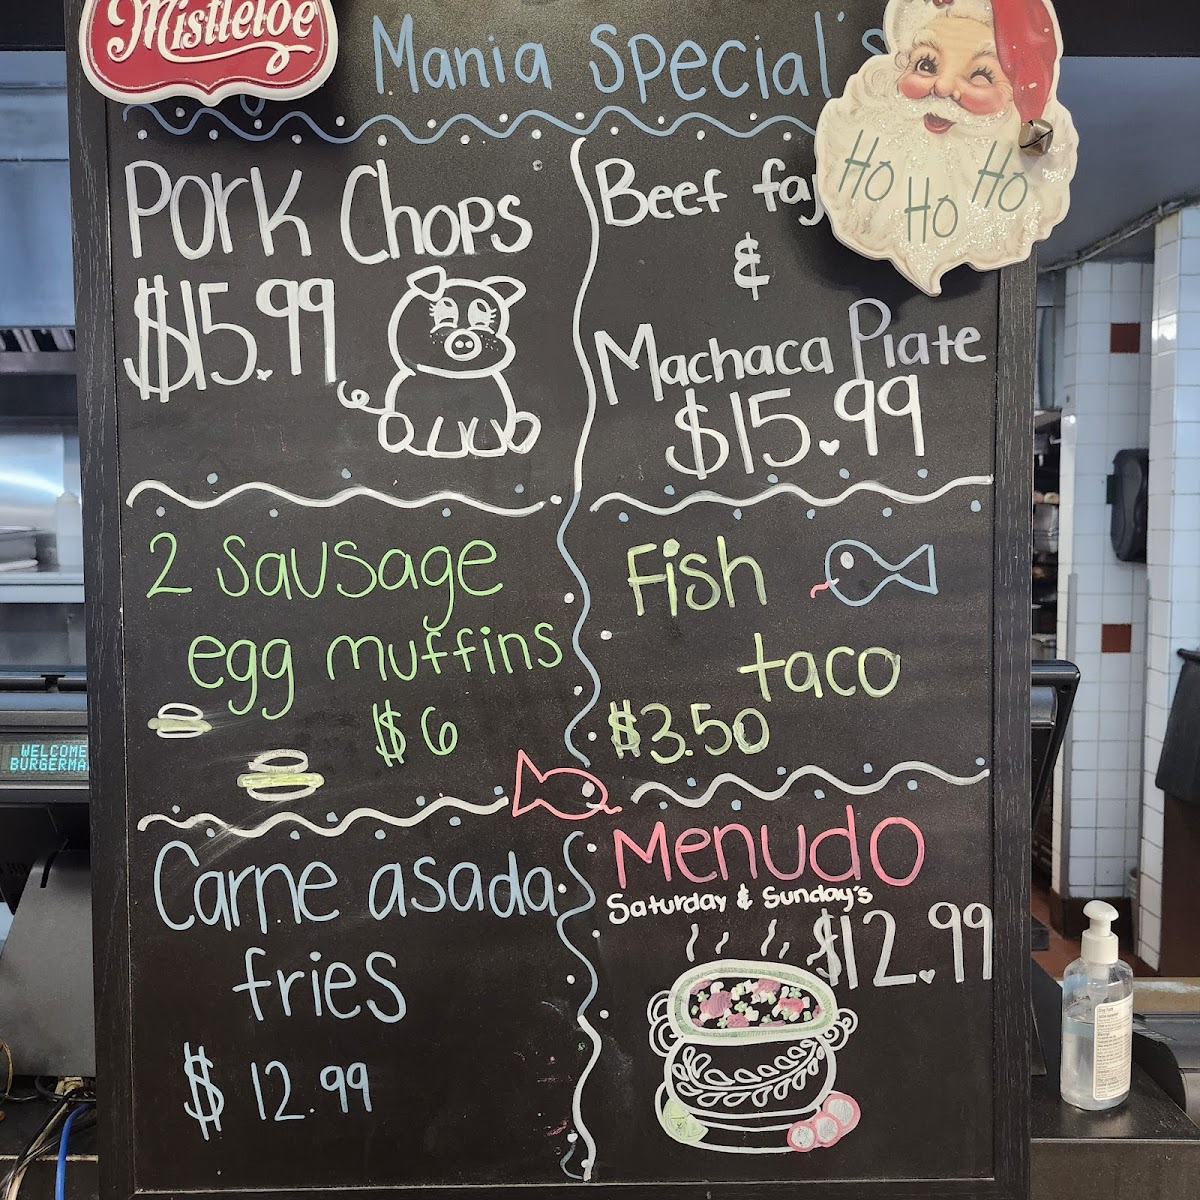 Mistletoe
Mania Special's
Ho Ho Ho
Pork Chops
$15.99
Beef faj
&
Machaca Plate
$15.99
2 Sausage
egg muffins
$6
Fish
taco
$3.50
Carne asada
fries
$12.99
Menudo
Saturday & Sunday's
$12.99
WELCOME
BURGERMA